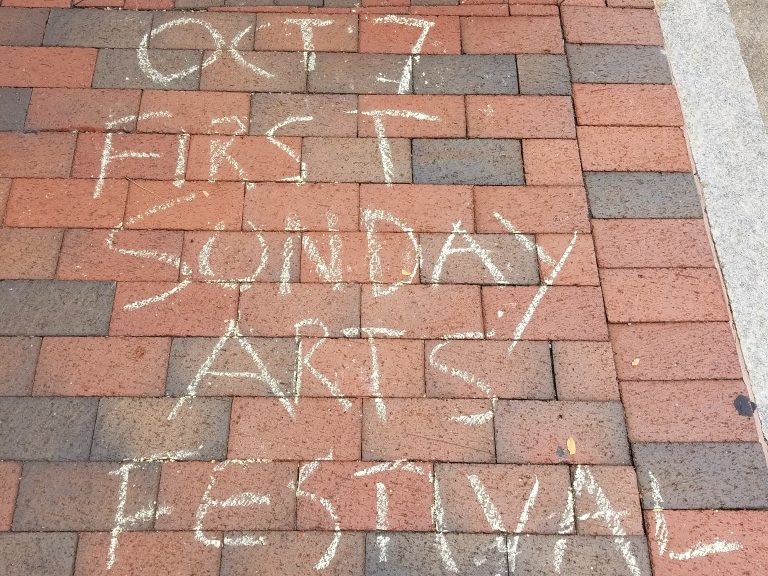 OCT 7
FIRST
SUNDAY
ARTS
FESTIVAL